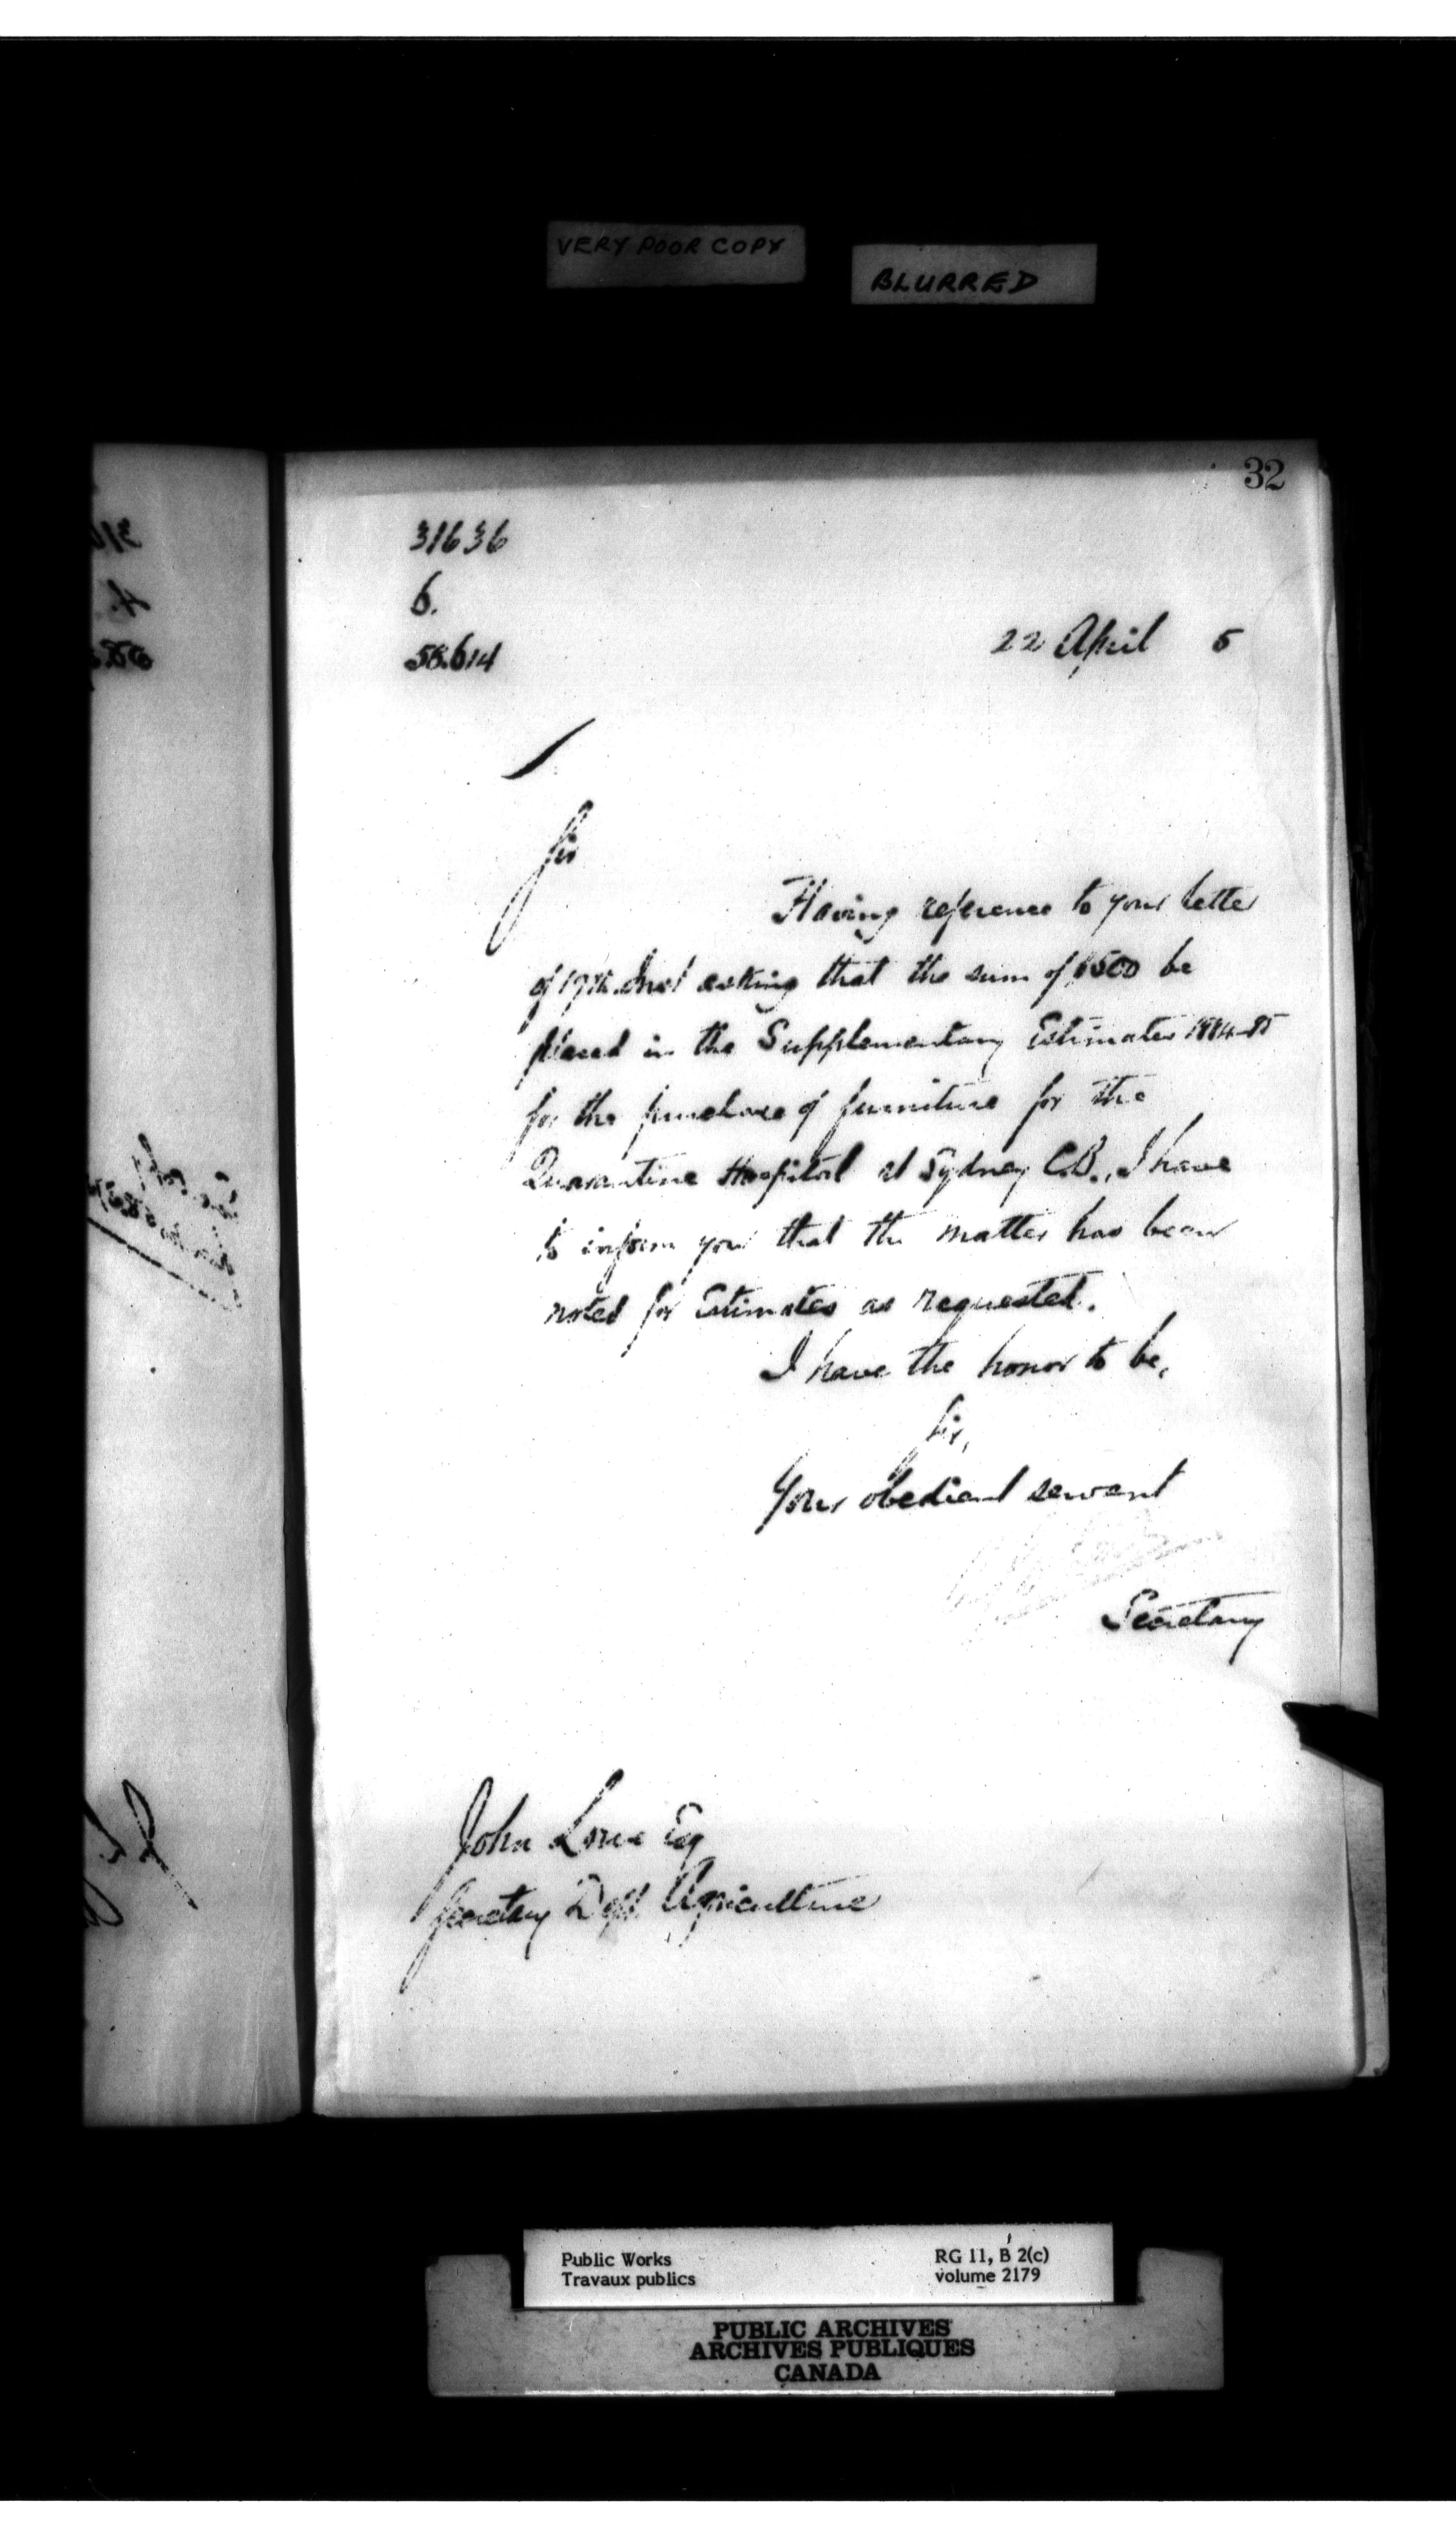 VERY POOR COPY
BLURRED
32
31636
6.
58.614
22 April 5
Sir
Having reference to your letter
of 17th. Inst asking that the sum of $500 be
placed in the Supplementary Estimates 1884-85
for the purchase of furniture for the
Quarantine Hospital at Sydney C.B., I have
to inform you that the matter has been
noted for Estimates as requested.
I have the honor to be,
Sir,
Your obedient servant
Secretary
John Lowe Esq
Secretary Dept. Agriculture
Public Works
Travaux publics
RG 11, B 2(c)
volume 2179
PUBLIC ARCHIVES
ARCHIVES PUBLIQUES
CANADA